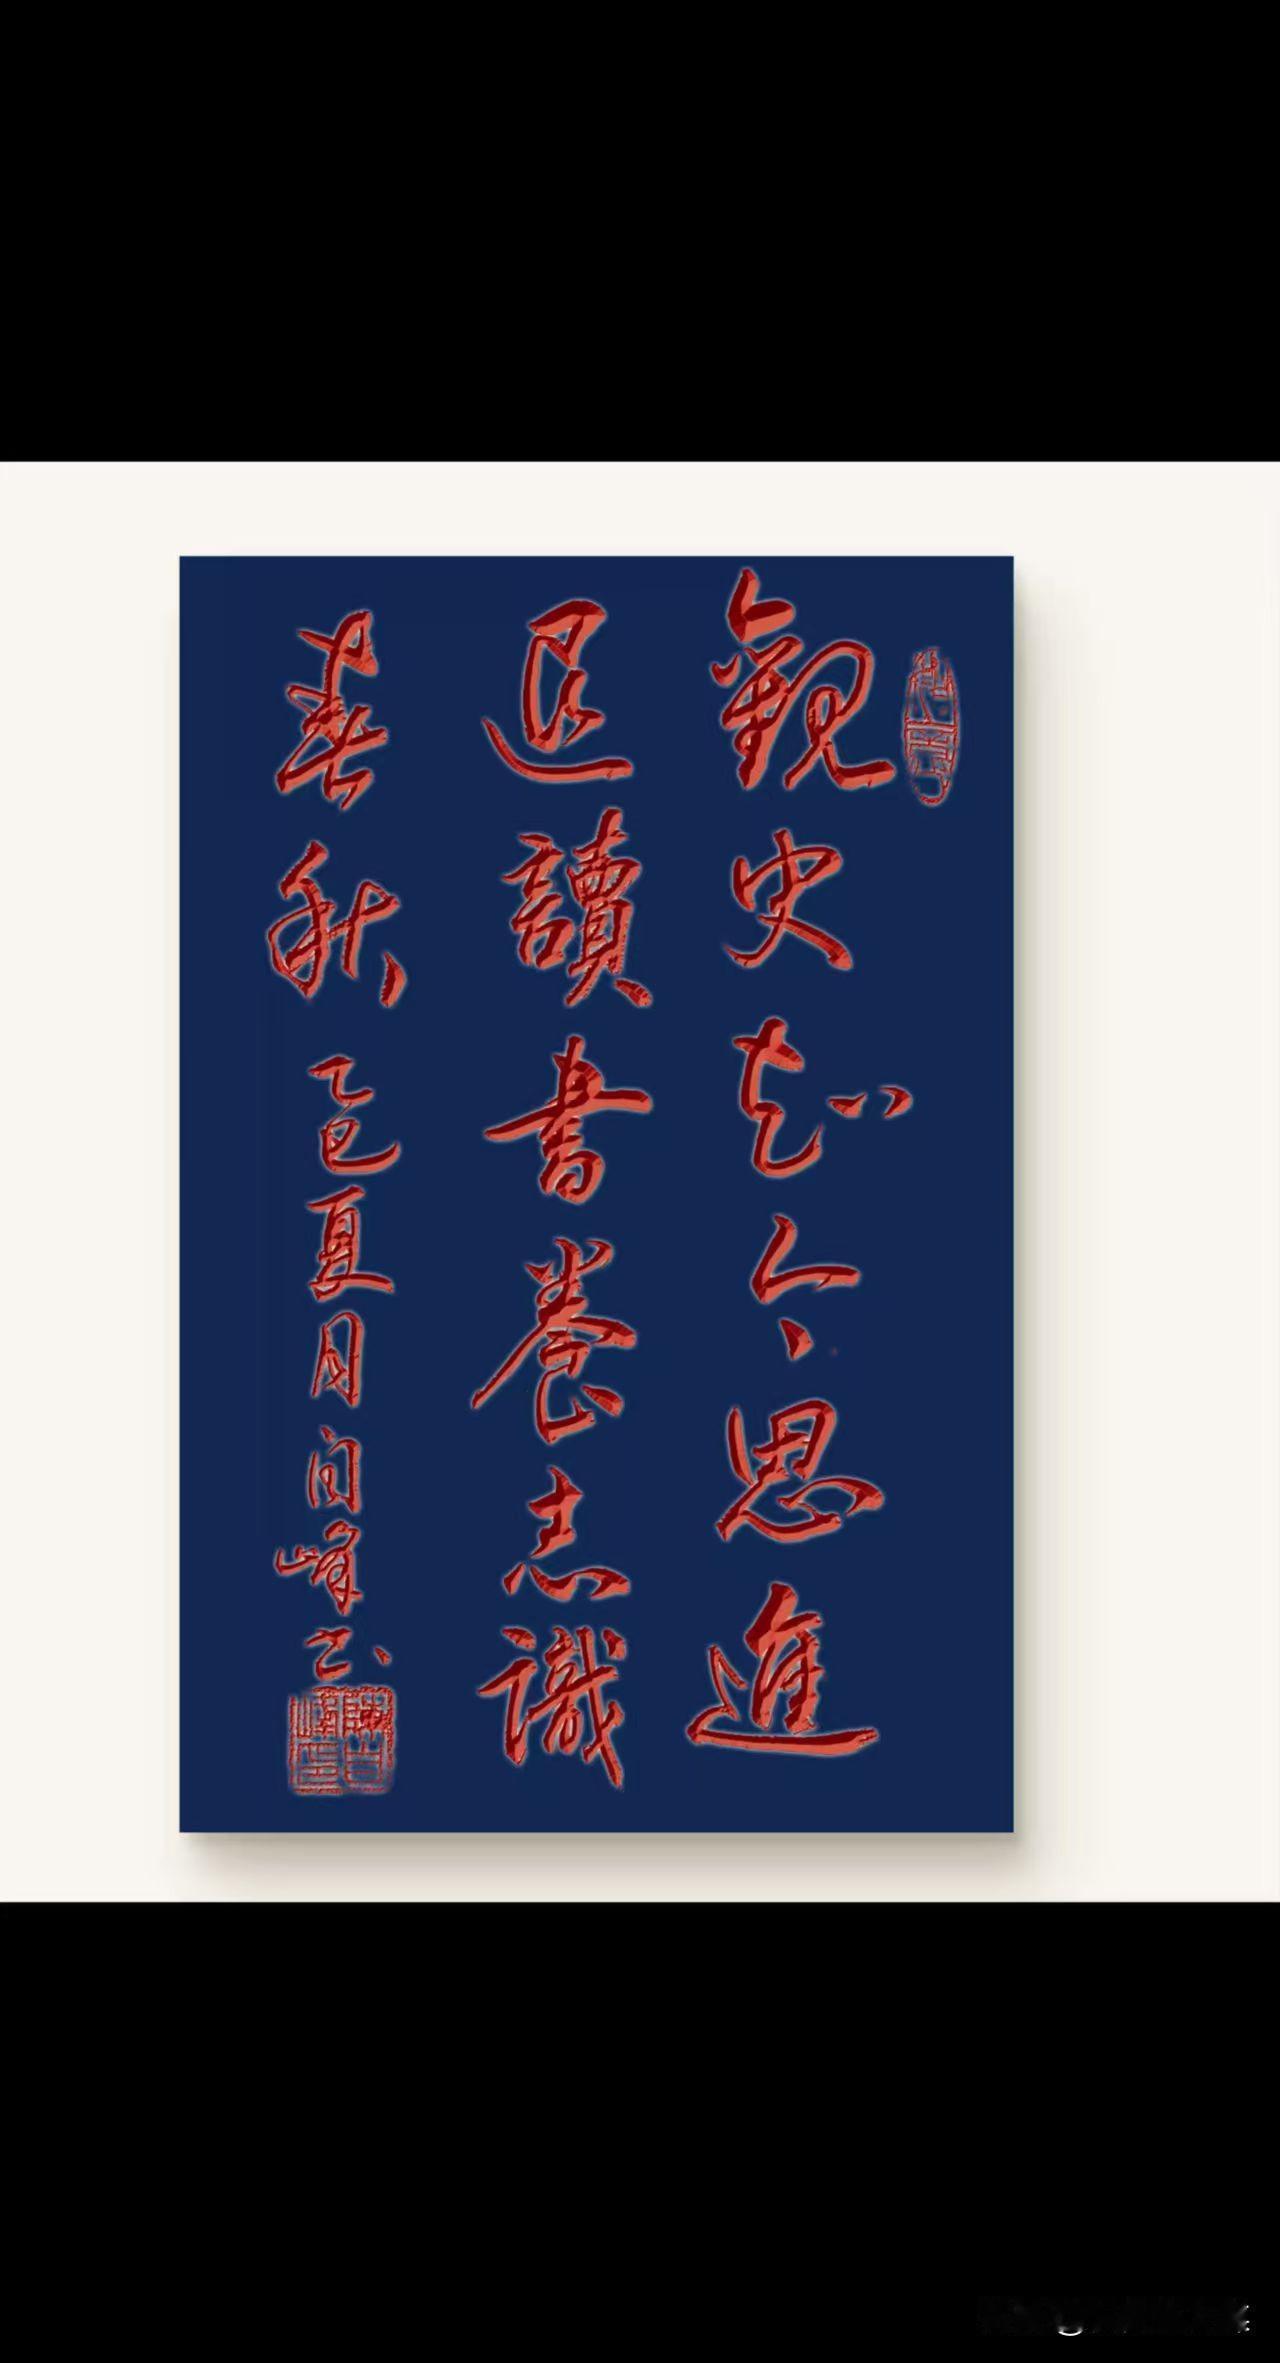 觀史知今思進
退讀書養志識
春秋 乙巳夏月向峰书